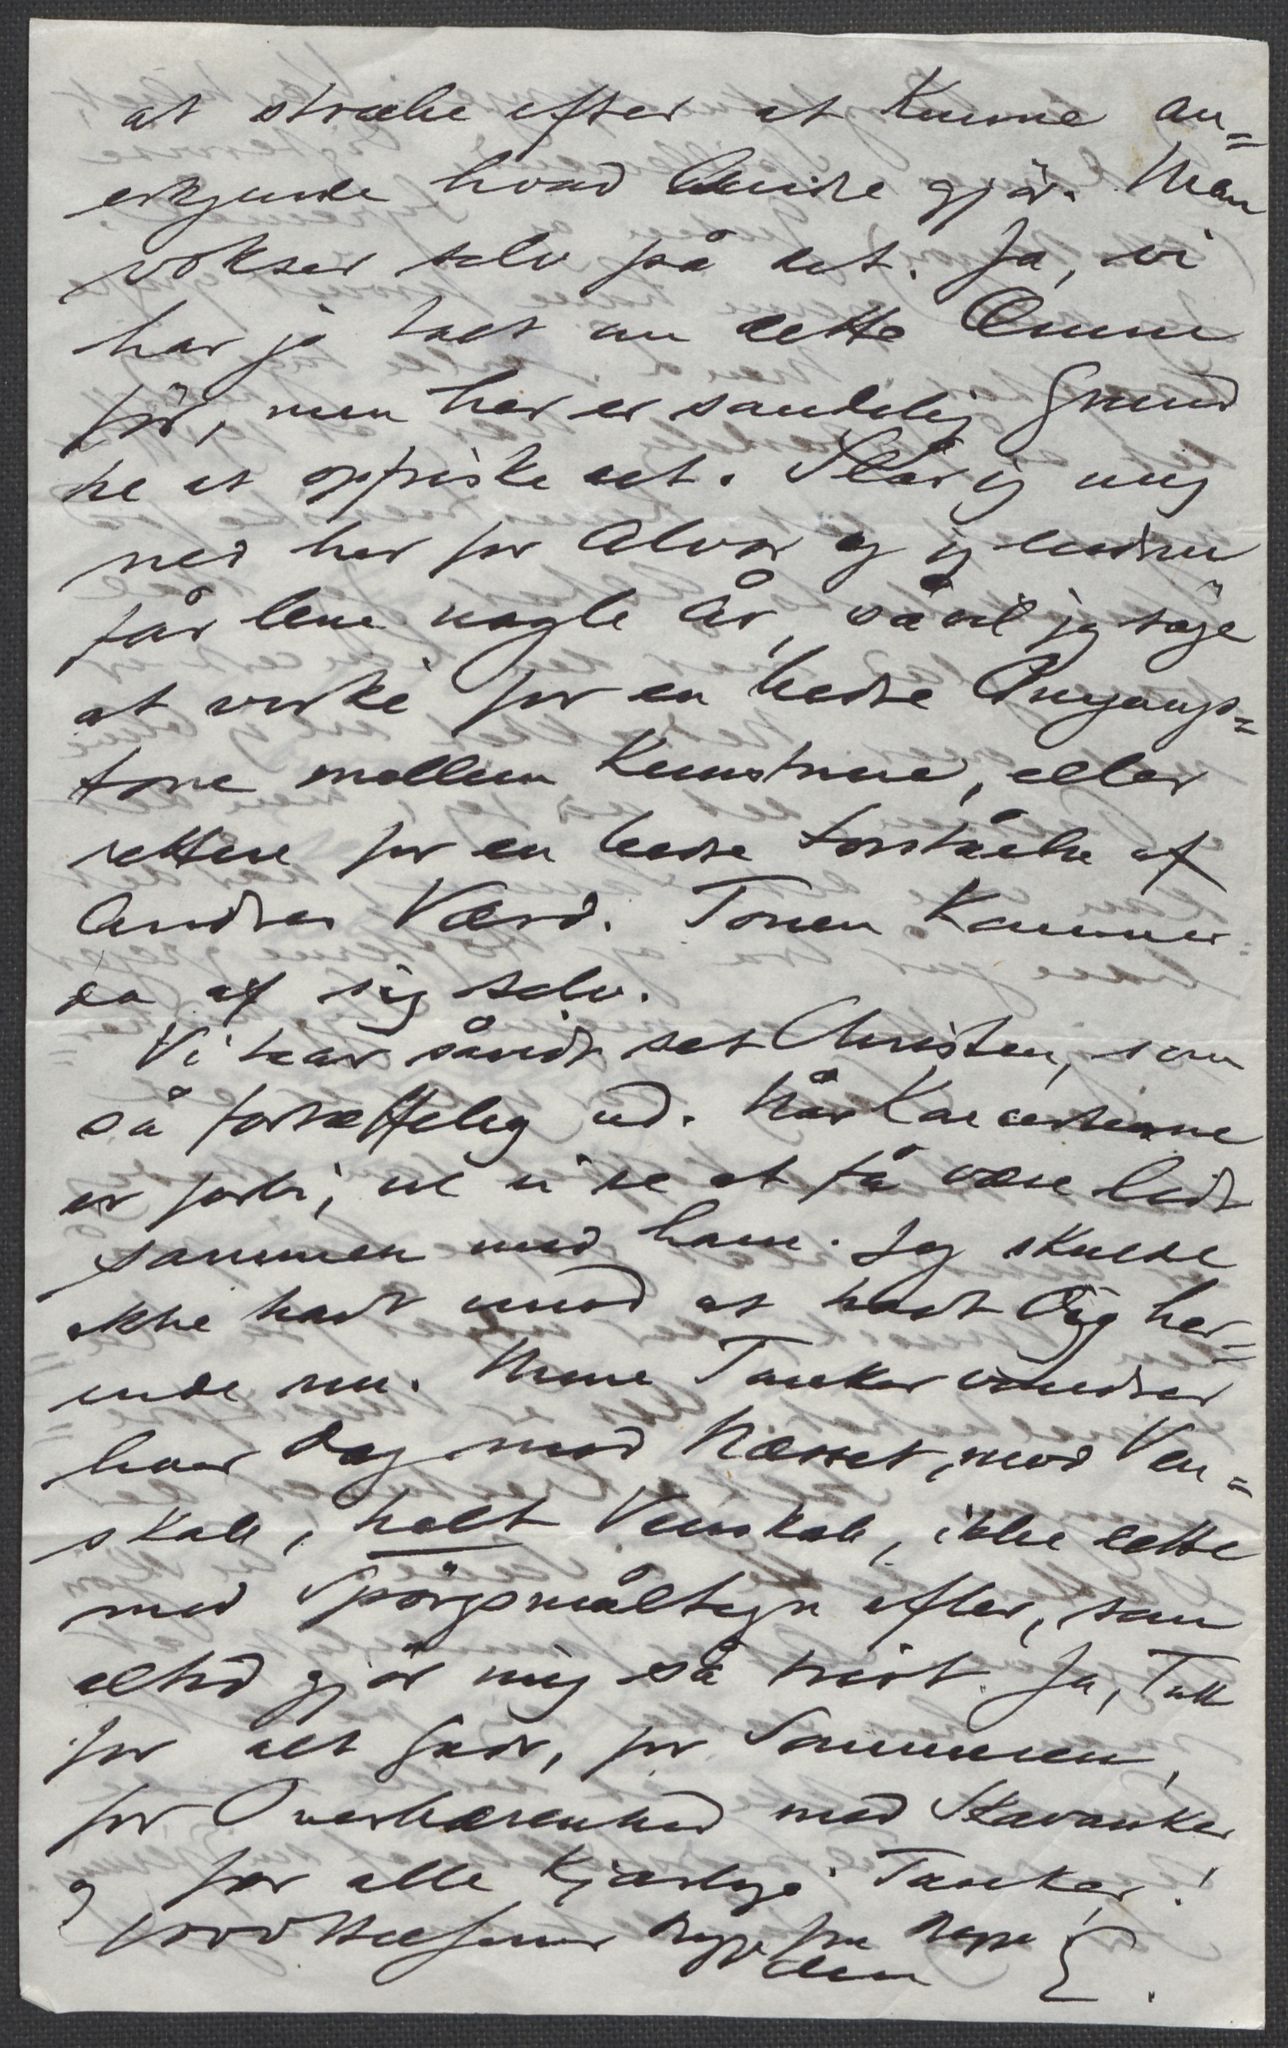 at stræbe efter at kunne an=
erkjende hvad Andre gjör. Man
vokser selv på det. Ja, vi
har jo talt om dette Emne
för, men her er sandelig Grund
til at opfriske det. Slår jeg mig
ned her for Alvor og jeg endnu
får leve nogle År, så vil jeg söge
at virke for en bedre Omgangs=
tone mellem Kunstnerne, eller
rettere for en bedre Forståelse af
Andres Værd. Tonen kommer
da af sig selv.
Vi har såvidt set Christen, som
så fortræffelig ud. Når Koncerterne
er forbi, vil vi se at få være lidt
sammen med ham. Jeg skulde
ikke havt imod at havt Dig her=
inde nu. Mine Tanker vandrer
hver Dag mod Næsset, mod Ven=
skab, helt Venskab, ikke dette
med Spörgsmåltegn efter, som
altid gjör mig så trist. Ja, Tak
for alt Godt, for Sommeren,
for Overbærenhed med Skavanker
og for alle kjærlige Tanker!
fra